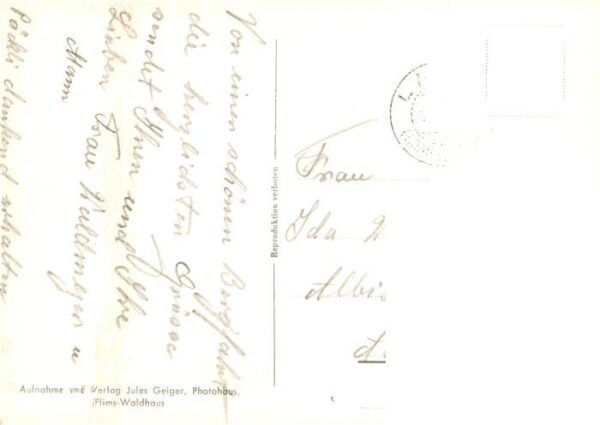 Von einer schönen Bergfahrt
die herzlichsten Grüsse
sendet Ihnen und Ihre
Lieben Frau Waldmeyer u
Mann
Päckli dankend erhalten
Reproduktion verboten
Frau
Ida
Albi
Aufnahme und Verlag Jules Geiger, Photohaus,
Flims-Waldhaus